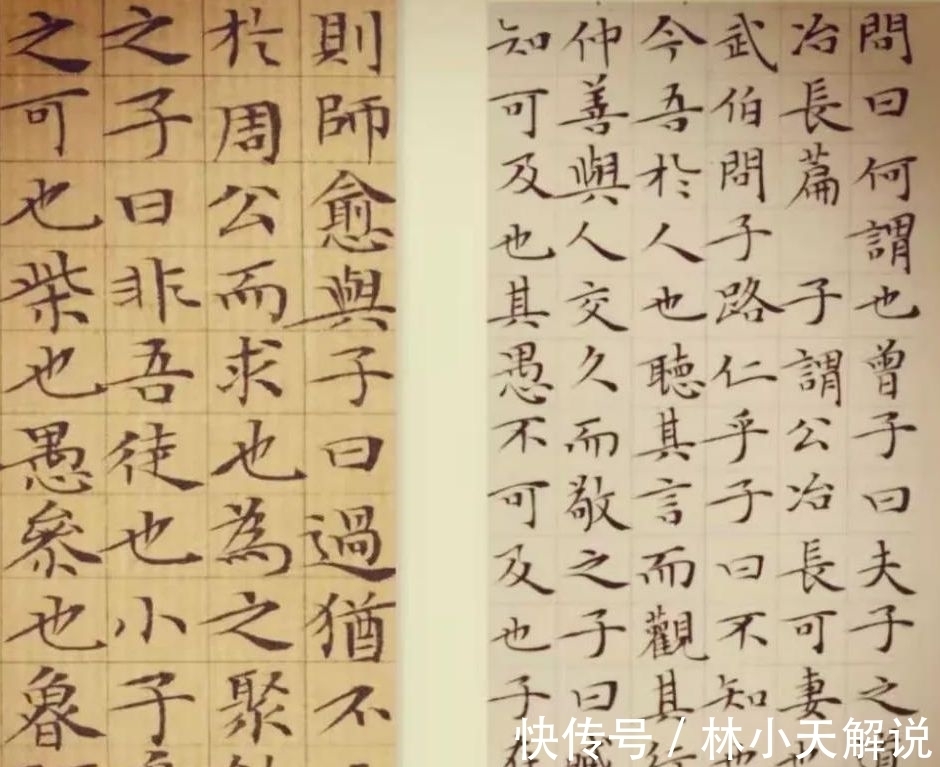 問曰何謂也曾子曰夫子之
冶長篇 子謂公冶長可妻
武伯問子路仁乎子曰不知
今吾於人也聽其言而觀其
仲善與人交久而敬之子曰
知可及也其愚不可及也子
則師愈與子曰過猶不
於周公而求也為之聚
之子曰非吾徒也小子
之可也柴也愚參也魯
快传号 / 林小天解说